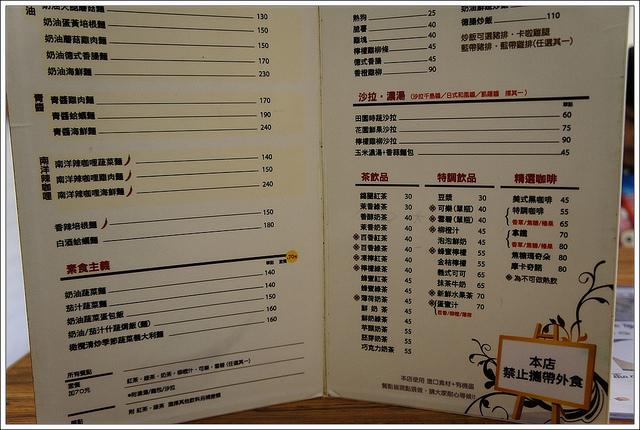 油
奶油蛋黃培根麵 150
奶油蘑菇雞肉麵 150
奶油德式香腸麵 170
奶油海鮮麵 230
青醬
青醬雞肉麵 170
青醬蛤蠣麵 190
青醬海鮮麵 240
南洋辣咖哩
南洋辣咖哩蔬菜麵 140
南洋辣咖哩雞肉麵 150
南洋辣咖哩海鮮麵 240
香辣培根麵 150
白酒蛤蠣麵 180
素食主義
奶油蔬菜麵 140
茄汁蔬菜麵 140
奶油蔬菜蛋包飯 150
奶油/茄汁什蔬焗飯(麵) 160
橄欖清炒季節蔬菜義大利麵 160
所有餐點
套餐
加70元
熱狗 25
脆薯 40
雞塊 40
檸檬雞柳條 45
德式香腸 45
香橙雞柳 90
德腸炒飯 110
炒飯可選豬排、卡啦雞腿
藍帶豬排、藍帶雞排(任選其一)
沙拉・濃湯 (沙拉千島醬/日式和風醬/凱薩醬 擇其一)
田園時蔬沙拉 60
花園鮮果沙拉 75
檸檬雞柳沙拉 90
玉米濃湯+香蒜麵包 45
茶飲品
錫蘭紅茶 30
茉香綠茶 30
香醇奶茶 40
茉香奶茶 40
※百香紅茶 40
※百香綠茶 40
※凍檸紅茶 40
※檸檬綠茶 40
蜂蜜紅茶 45
蜂蜜綠茶 45
※薄荷奶茶 45
鮮奶茶 45
鮮奶綠茶 45
芋頭奶茶 55
胚芽奶茶 55
巧克力奶茶 55
特調飲品
豆漿 30
※可樂(單瓶) 40
※雪碧(單瓶) 40
※柳橙汁 45
泡泡鮮奶 45
※蜂蜜檸檬 55
※金桔檸檬 55
義式可可 65
抹茶牛奶 65
※新鮮水果茶 70
※蛋蜜汁 70
精選咖啡
美式黑咖啡 45
特調咖啡 55
香草/焦糖/榛果 65
拿鐵 70
香草/焦糖/榛果 80
焦糖瑪奇朵 80
摩卡奇諾 80
※為不可做熱飲
本店使用 進口食材+有機蔬
餐點皆現點現做,請大家耐心等候!!
本店
禁止攜帶外食